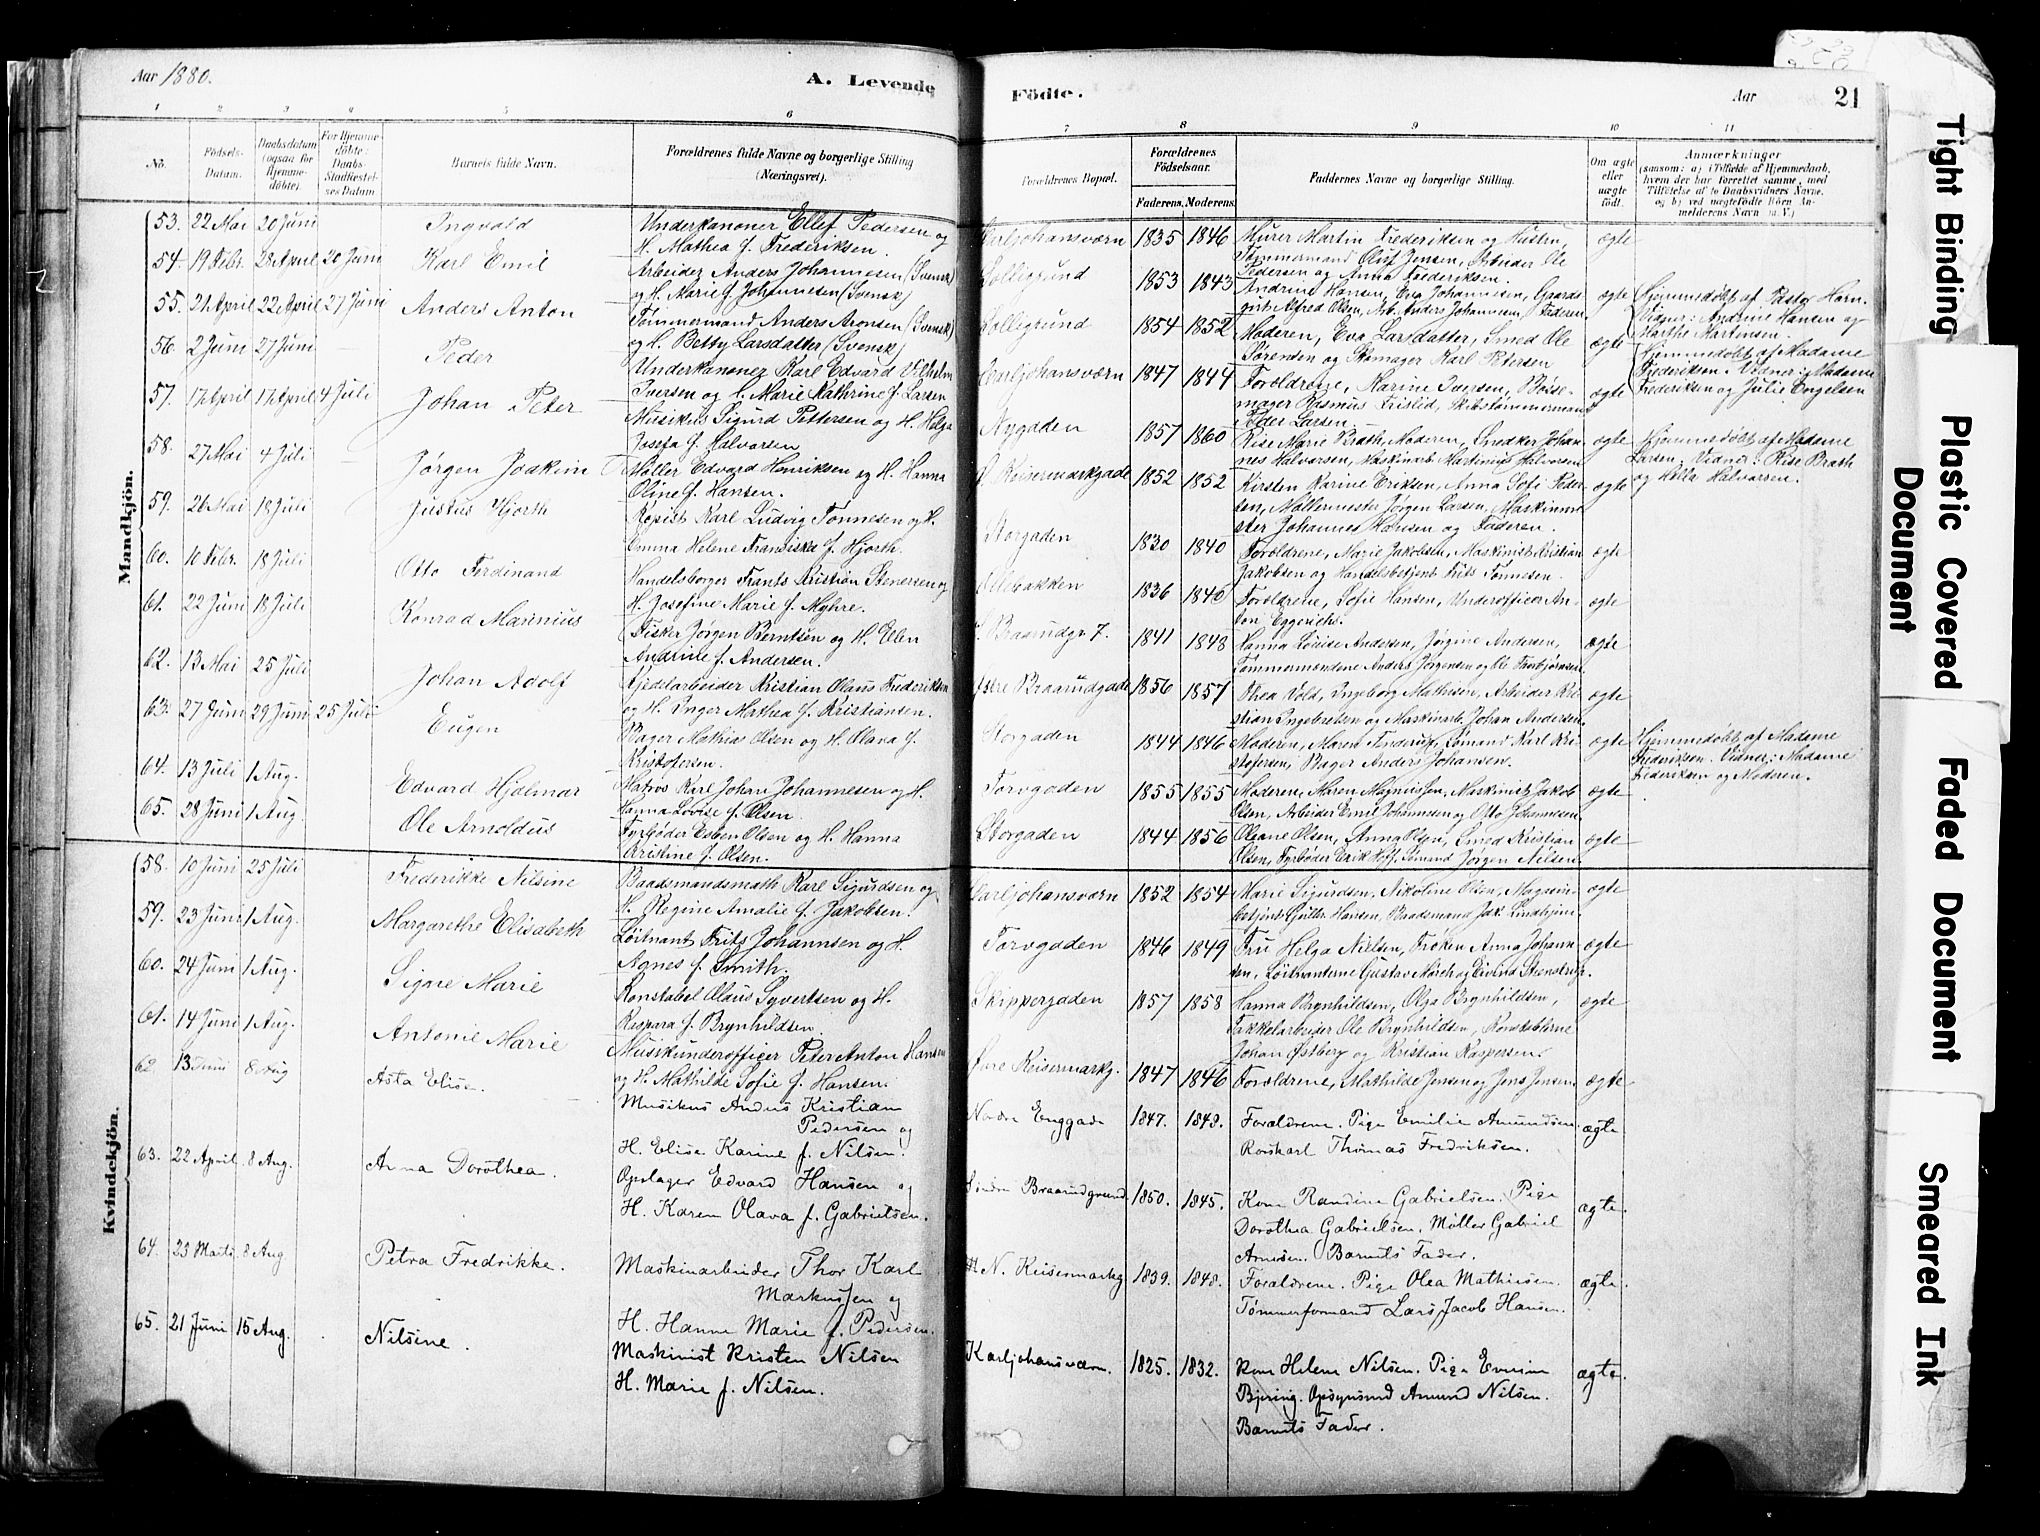 Aar 1880.
A. Levende
Födte.
Aar
21
1 2 3 4 5 6 7 8 9 10 11
No.
Födsels-Datum.
Daabsdatum (ogsaa for Hjemmedöbte).
For Hjemmedöbte: Daabs-Stadfæstelses Datum
Barnets fulde Navn.
Forældrenes fulde Navne og borgerlige Stilling (Næringsvei).
Forældrenes Bopæl.
Forældrenes Födselsaar.
Faderens. Moderens.
Faddernes Navne og borgerlige Stilling.
Om ægte eller uægte födt.
Anmærkninger
(saasom: a) i Tilfælde af Hjemmedaab, hvem der har forrettet samme, med Tilföielse af to Daabsvidners Navne, og b) ved uægtefödte Börn Anmelderens Navn m.V.)
Mandkjön.
53. 22 Mai 20 Juni Ingvald
Underkanoner Ellef Pedersen og
H. Mathea f. Frederiksen.
Karljohansværn 1835 1846
Murer Martin Frederiksen og Hustru,
Tømmermand Oluf Jensen, Arbeider Ole
Pedersen og Anna Frederiksen.
ægte
54. 19 Febr. 28 April 20 Juni Karl Emil
Arbeider Anders Johannesen (Svensk)
og H. Marie f. Johannesen (Svensk)
1853 1843
Andrine Hansen, Eva Johannesen, Gaards-
Alfred Olsen, Arb. Anders Johannesen, Faderen
ægte
Hjemmedøbt af Pastor Horn.
Vidner: Andrine Hansen og
Marthe Martinsen.
55. 21 April 22 April 27 Juni Anders Anton
Tømmermand Anders Aronsen (Svensk)
og H. Betty Larsdatter (Svensk)
1854 1852
Moderen, Eva Larsdatter, Smed Ole
Sørensen og Karl Petersen
ægte
Hjemmedøbt af Madame
Frederiksen. Vidner: Madame
Frederiksen og Julie Engelsen
56. 2 Juni 27 Juni Peder
Underkanoner Karl Edvard Vilhelm
Iversen og H. Marie Kathrine f. Larsen
Carljohansværn 1847 1844
Forældrene, Marine Iversen, Bøsse-
mager Rasmus Frislid, Skibstømmermand
Peder Larsen.
ægte
57. 17 April 17 April 4 Juli Johan Peter
Musikus Sigurd Pettersen og H. Helga
Josefa f. Halvorsen
Nygaden 1857 1860
Rise Marie Brath, Moderen, Snedker Johan-
nes Halvorsen, Maskinarb. Martinius Halvorsen
ægte
Hjemmedøbt af Madame
Larsen. Vidner: Rise Brath
og Halvorsen.
58. 27 Mai 4 Juli Jørgen Joakim
Møller Edvard Henriksen og H. Hanna
Oline f. Hansen.
Keisermarkgade 1852 1852
Kirsten Karine Eriksen, Anna Sofie Peder-
sen, Møllermester Jørgen Larsen, Maskinme-
ster Johannes Hansen og Faderen.
ægte
59. 26 Mai 18 Juli Justus Hjorth
Kopist Karl Ludvig Tønnesen og H.
Emma Helene Franciska f. Hjorth.
Storgaden 1830 1840
Forældrene, Marie Jakobsen, Maskinist Kristian
Jakobsen og Handelsbetjent Frits Tønnesen.
ægte
60. 10 Febr. 18 Juli Otto Ferdinand
Handelsborger Frants Kristian Stenersen og
H. Josefine Marie f. Myhre.
1836 1840
Forældrene, Sofie Hansen, Underofficer An-
ton Eggerichs.
ægte
61. 22 Juni 18 Juli Konrad Marinius
Fisker Jørgen Berntsen og H. Ellen
Andrine f. Andersen.
Braarudgr. 7. 1841 1848
Hanna Lovise Andersen, Jørgine Andersen,
Tømmermændene Anders Jørgensen og Ole Torbjørnsen.
ægte
62. 13 Mai 25 Juli Johan Adolf
Kjedelarbeider Kristian Olaus Frederiksen
og H. Inger Mathea f. Kristiansen.
Braarudgade 1856 1857
Thea Vold, Ingeborg Mathisen, Arbeider Kri-
stian Ingebretsen og Maskinarb. Johan Andersen.
ægte
63. 27 Juni 29 Juni 25 Juli Eugen
Bager Mathias Olsen og H. Olava f.
Kristofersen.
Storgaden 1844 1846
Moderen, Maren Finderup, Sømand Karl Kri-
stofersen, Bager Anders Johansen.
ægte
Hjemmedøbt af Madame
Frederiksen. Vidner: Madame
Frederiksen og Moderen.
64. 13 Juli 1 Aug. Edvard Hjalmar
Matros Karl Johan Johannesen og H.
Hanna Lovise f. Olsen.
Torvgaden 1855 1855
Moderen, Maren Magnussen, Maskinist Jakob
Olsen, Arbeider Emil Johannesen og Otto Johannesen.
ægte
65. 28 Juni 1 Aug. Ole Arnoldus
Fyrbøder Esben Olsen og H. Hanna
Kristine f. Olsen.
Storgaden 1844 1856
Oleane Olsen, Anna Olsen, Smed Kristian
Olsen, Fyrbøder Erik Hoff, Sømand Jørgen Nilsen.
ægte
Kvindekjön.
58. 10 Juni 25 Juli Frederikke Nilsine
Baadsmandsmath Karl Sigurdsen og
H. Regine Amalie f. Jakobsen.
Carljohansværn 1852 1854
Marie Sigurdsen, Nikoline Olsen, Magasin-
betjent Gullbr. Hansen, Baadsmand Jak. Lindhjem.
ægte
59. 23 Juni 1 Aug. Margarethe Elisabeth
Løitnant Frits Johannsen og H.
Agnes f. Smith.
Torvgaden 1846 1849
Fru Helga Nielsen, Frøken Anna Johann-
sen, Løitnanterne Gustav Mørch og Eivind Stenstrup.
ægte
60. 24 Juni 1 Aug. Signe Marie
Konstabel Olaus Syvertsen og H.
Kaspara f. Brynhildsen.
Skippergaden 1857 1858
Hanna Brynhildsen, Olga Brynhildsen,
Takkelarbeider Ole Brynhildsen, Konstablerne
Johan Østberg og Kristian Kaspersen.
ægte
61. 14 Juni 1 Aug. Antonie Marie
Musikunderofficer Peter Anton Hansen
og H. Mathilde Sofie f. Hansen.
Keisermarkg. 1847 1846
Forældrene, Mathilde Jensen og Jens Jensen.
ægte
62. 13 Juni 8 Aug Asta Elise.
Musikus Anders Kristian
Pedersen og
H. Elise Karine f. Nilsen.
Nordre Enggade 1847. 1848.
Forældrene. Pige Emilie Amundsen.
Rorskarl Thomas Fredriksen.
ægte.
63. 22 April. 8 Aug. Anna Dorothea.
Opslager Edvard Hansen og
H. Karen Olava f. Gabrielsen.
Søndre Braarudgrund. 1850. 1845.
Kone Randine Gabrielsen. Pige
Dorothea Gabrielsen. Møller Gabriel
Arnesen. Barnets Fader.
ægte.
64. 23 Marts 8 Aug Petra Fredrikke.
Maskinarbeider Thor Karl
Markussen og
H. Hanne Marie f. Pedersen.
N. Keisermarkg 1839. 1848.
Forældrene. Pige Olea Mathiesen.
Tømmerformand Lars Jacob Hansen.
ægte.
65. 21 Juni 15 Aug. Nilsine.
Maskinist Kristen Nilsen
H. Marie f. Nilsen.
Karljohansværn. 1825. 1832.
Kone Helene Nilsen. Pige
Bjering. Opsynsmd Amund Nilsen.
Barnets Fader.
ægte.
Tight Binding
Plastic Covered Document
Faded Document
Smeared Ink